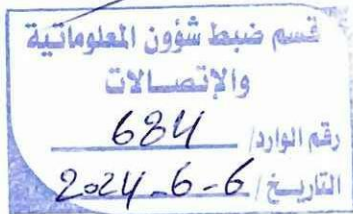 قسم ضبط شؤون المعلوماتية
والإتصالات
رقم الوارد/ 684
التاريخ / 2024-6-6